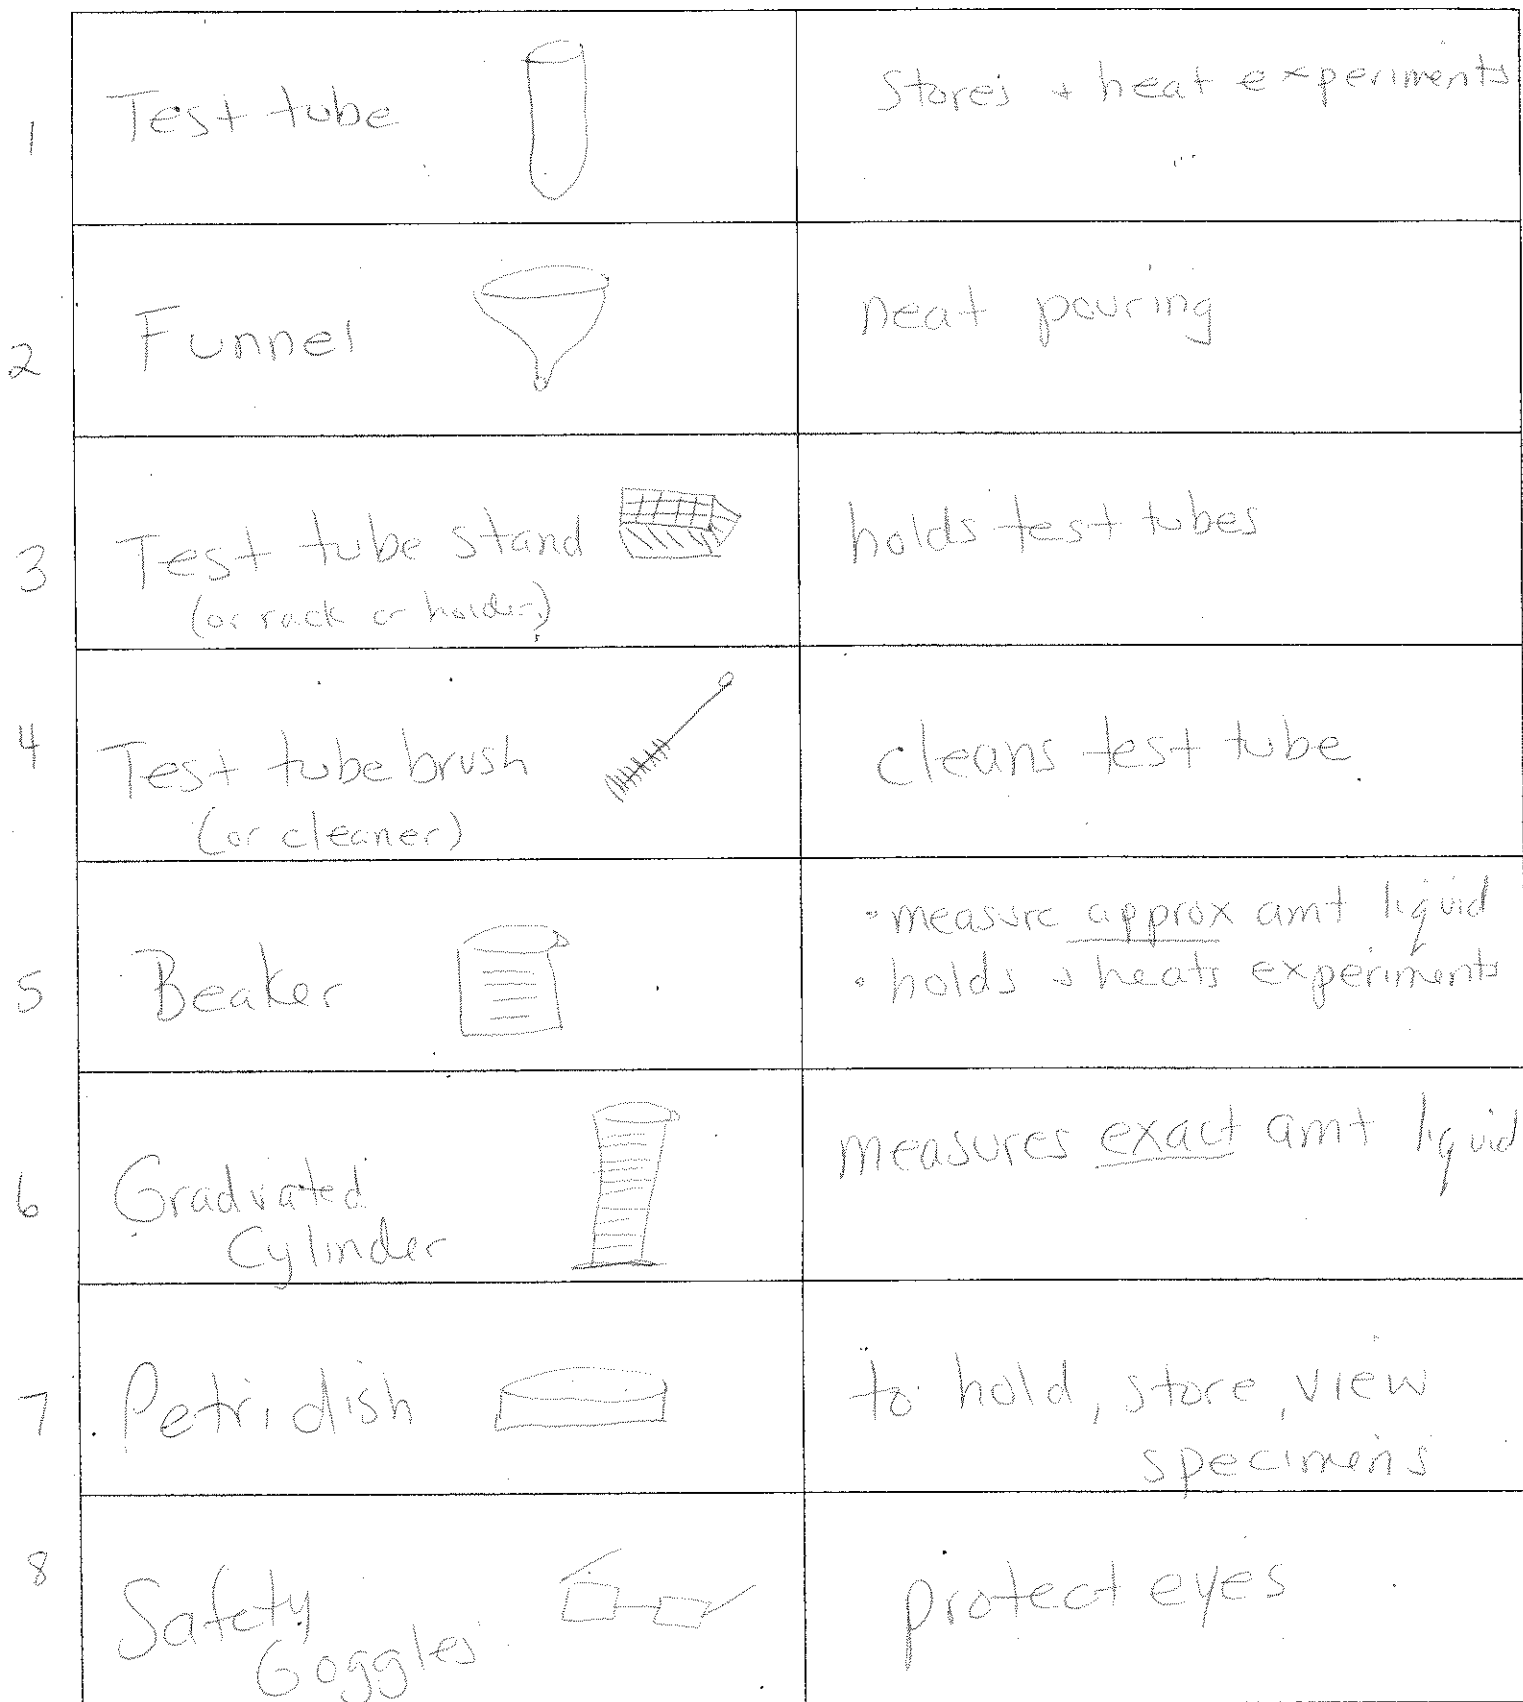 1 Test tube Stores + heat experiments
2 Funnel neat pouring
3 Test tube stand holds test tubes
(or rack or holder)
4 Test tube brush cleans test tube
(or cleaner)
5 Beaker
• measure approx amt liquid
• holds + heats experiments
6 Graduated
Cylinder
measures exact amt liquid
7 Petri dish
to hold, store, view
specimens
8 Safety
Goggles
protect eyes